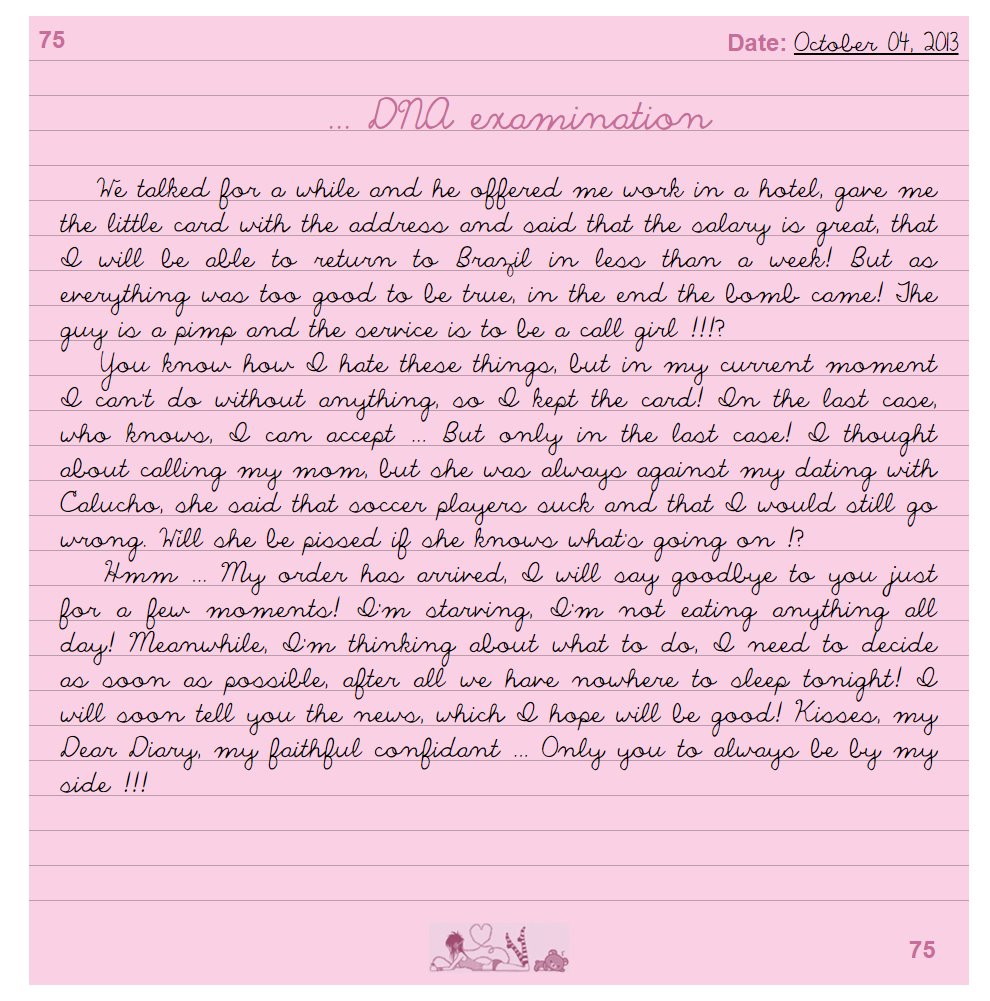 75
Date: October 04, 2013
... DNA examination
We talked for a while and he offered me work in a hotel, gave me
the little card with the address and said that the salary is great, that
I will be able to return to Brazil in less than a week! But as
everything was too good to be true, in the end the bomb came! The
guy is a pimp and the service is to be a call girl !!!?
You know how I hate these things, but in my current moment
I can't do without anything, so I kept the card! In the last case,
who knows, I can accept ... But only in the last case! I thought
about calling my mom, but she was always against my dating with
Calucho, she said that soccer players suck and that I would still go
wrong. Will she be pissed if she knows what's going on !?
Hmm ... My order has arrived, I will say goodbye to you just
for a few moments! I'm starving, I'm not eating anything all
day! Meanwhile, I'm thinking about what to do, I need to decide
as soon as possible, after all we have nowhere to sleep tonight! I
will soon tell you the news, which I hope will be good! Kisses, my
Dear Diary, my faithful confidant ... Only you to always be by my
side !!!
75